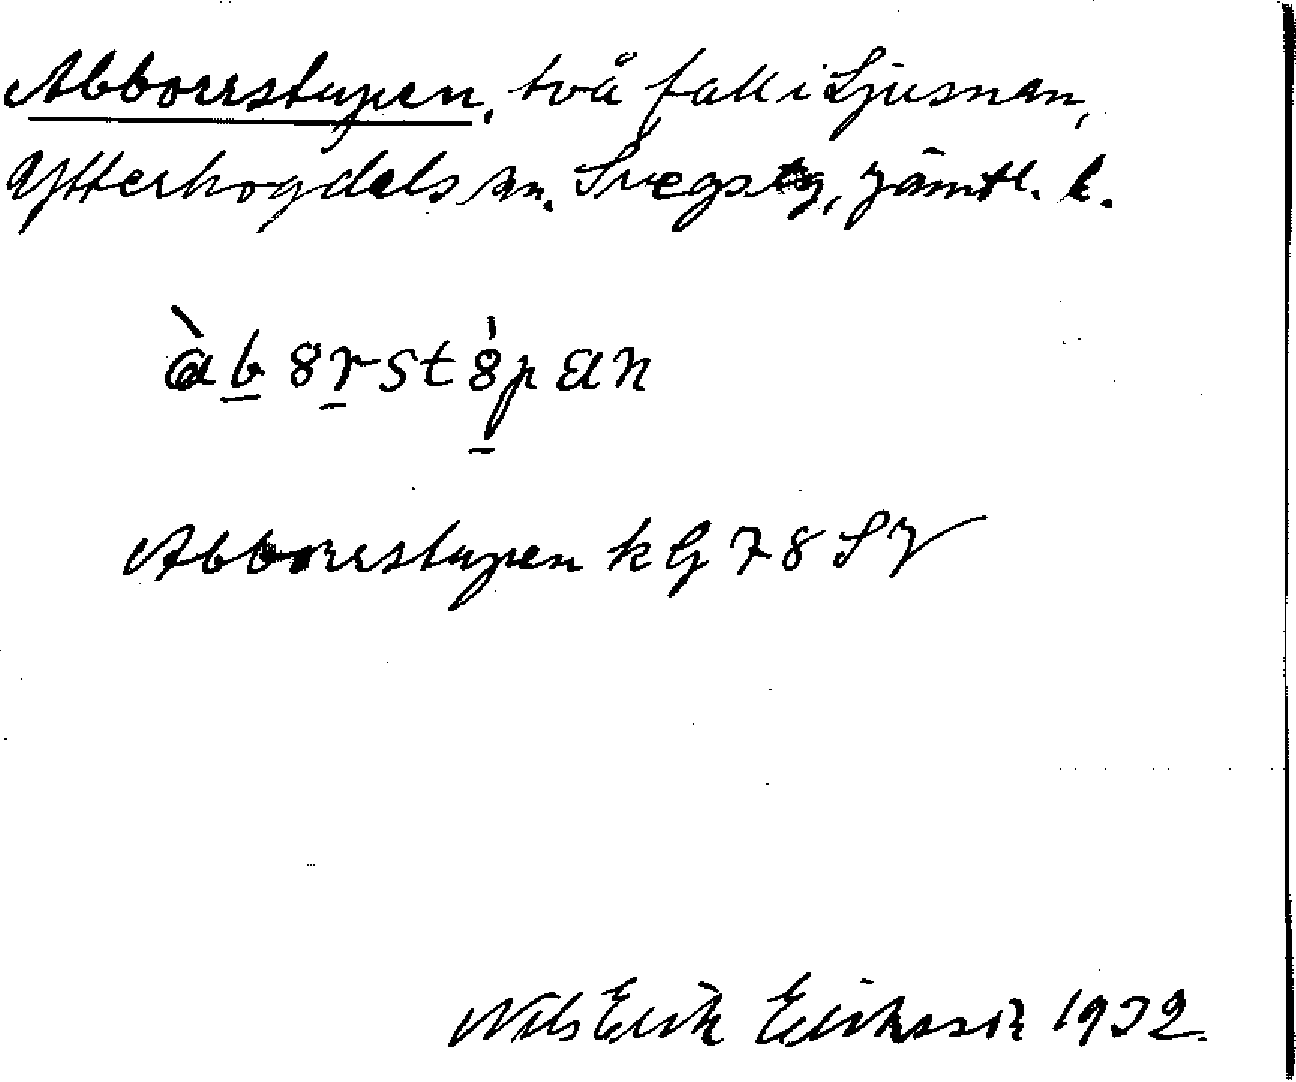 Abborrstupen, två fall i Ljusnan,
Ytterhogdals sn. Svegs tg, Jämtl. l.
àb8rst8̍pan
Abborrstupen k G 78 SV
Nils Erik Eriksson 1932.